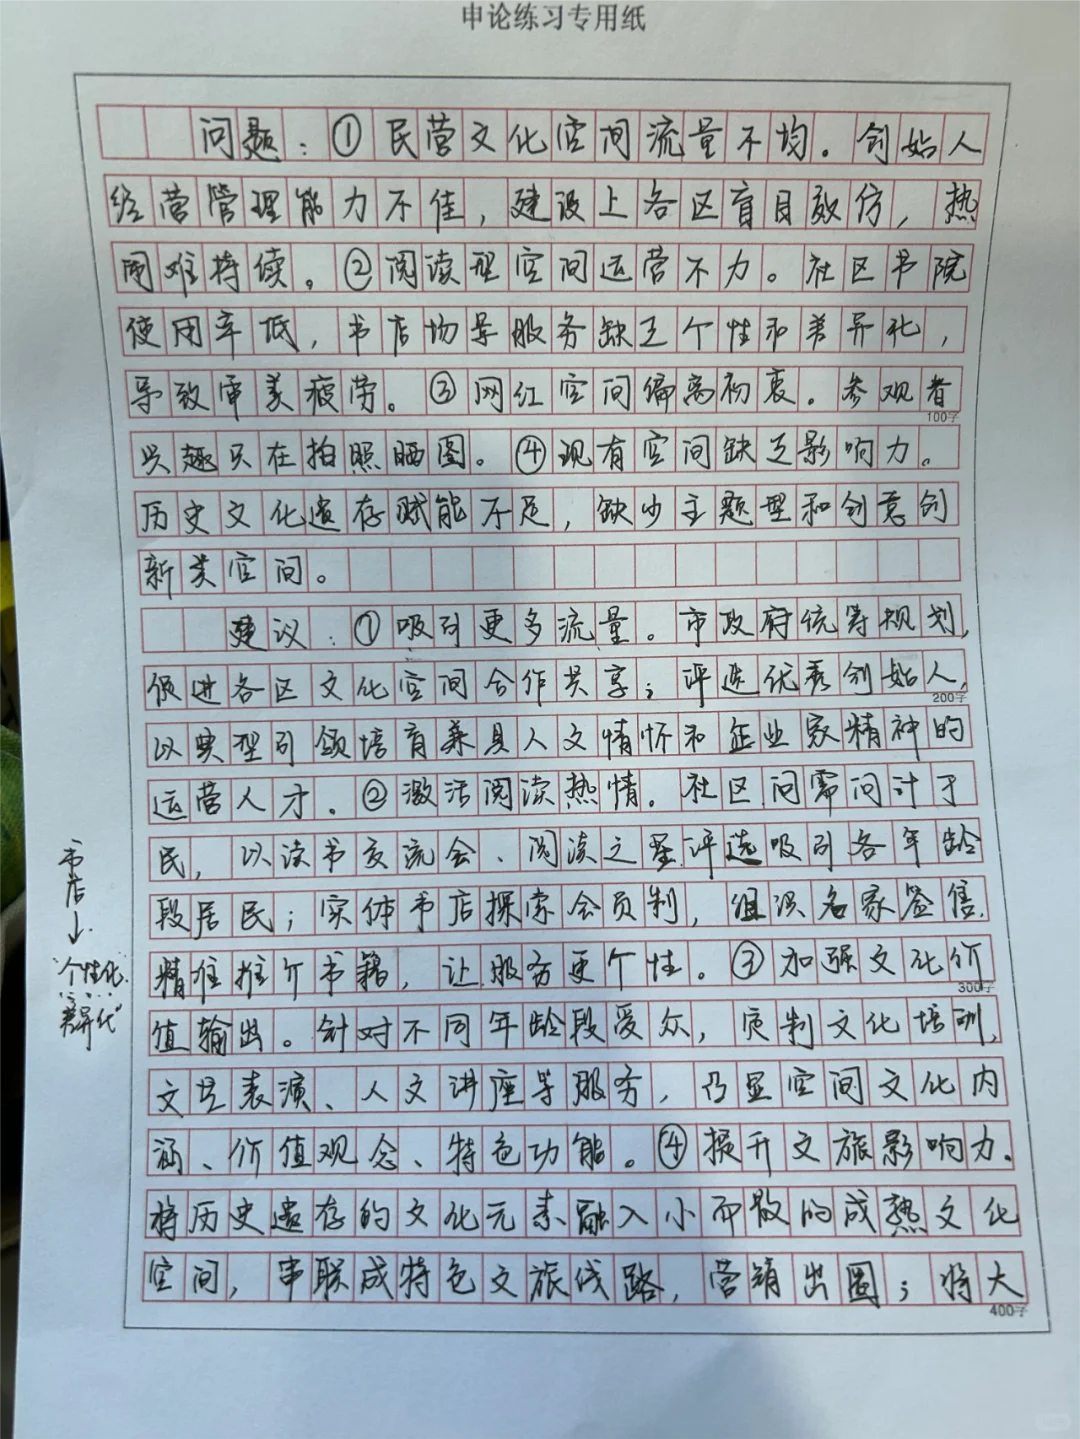 申论练习专用纸
问题：①民营文化空间流量不均。创始人
经营管理能力不佳，建设上各区盲目效仿，热
闹难持续。②阅读型空间运营不力。社区书院
使用率低，书店场景服务缺乏个性和差异化，
导致审美疲劳。③网红空间偏离初衷。参观者
100字
兴趣只在拍照晒图。④现有空间缺乏影响力。
历史文化遗存赋能不足，缺少主题型和创意创
新类空间。
建议：①吸引更多流量。市政府统筹规划，
促进各区文化空间合作共享；评选优秀创始人，
200字
以典型引领培育兼具人文情怀和企业家精神的
运营人才。②激活阅读热情。社区问需问计于
民，以读书交流会、阅读之星评选吸引各年龄
段居民；实体书店探索会员制，组织名家签售，
精准推介书籍，让服务更个性。③加强文化价
300字
值输出。针对不同年龄段受众，定制文化培训，
文艺表演、人文讲座等服务，凸显空间文化内
涵、价值观念、特色功能。④提升文旅影响力。
将历史遗存的文化元素融入小而散的成熟文化
空间，串联成特色文旅线路，营销出圈；将大
400字
书店
↓
"个性化
差异化"